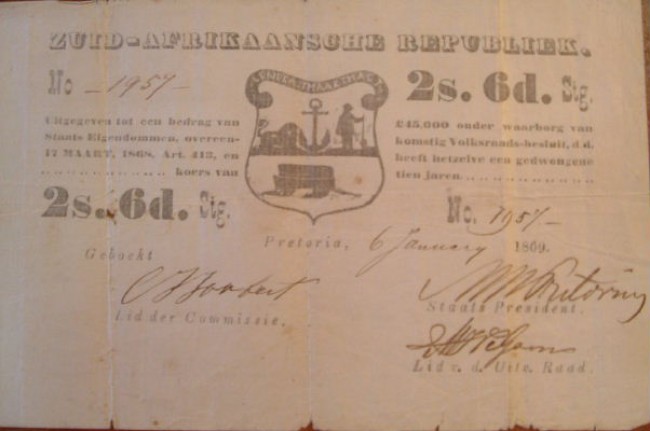 ZUID-AFRIKAANSCHE REPUBLIEK.
No 1957
EENDRAGT MAAKT MAGT
2s. 6d. Stg.
Uitgegeven tot een bedrag van £45,000 onder waarborg van
Staats Eigendommen, overeenkomstig Volksraads-besluit, d.d.
17 MAART, 1868, Art. 212, en heeft hetzelve een gedwongene
koers van tien jaren
2s. 6d. Stg.
No. 1957
Pretoria, 6 January 1869.
Geboekt
Lid der Commissie.
MW Pretorius
Staats President.
Lid v. d. Uitv. Raad.